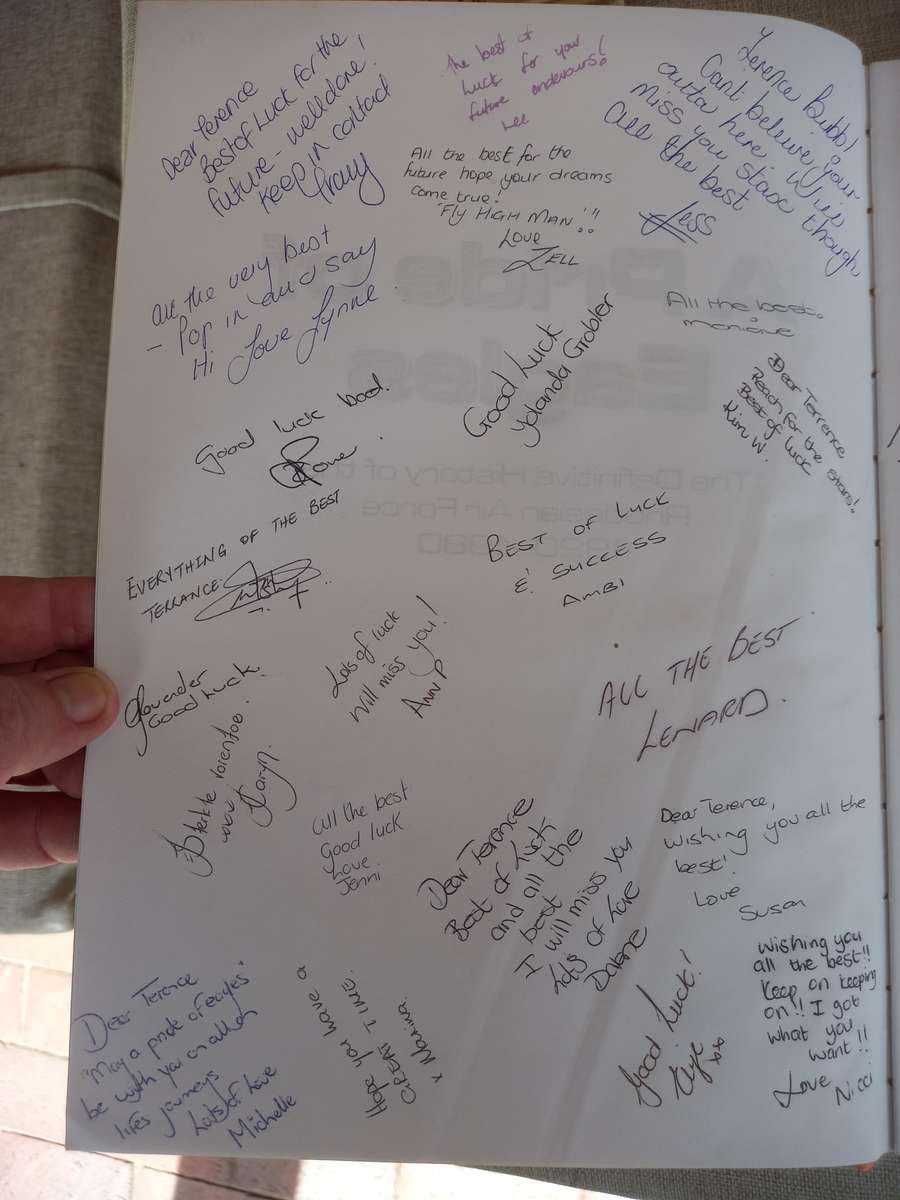 Dear Terence
Best of Luck for the
future - well done!
keep in contact
Tracy
The best of
luck for your
future endevours!
Lee
Terence Bubb!
Cant believe your
outa here. Will
miss you stax though
All the best
Jess
All the best for the
future hope your dreams
come true!
"Fly HIGH MAN"!!
Love
ZELL
All the very best
- Pop in and say
Hi Love Lynne
Good Luck
Yolanda Grobler
All the best.
Monique
Dear Terrence
Reach for the stars!
Best of luck
Kim W.
Good luck bod.
EVERYTHING OF THE BEST
TERRANCE
BEST OF LUCK
& SUCCESS
AMBI
Lots of luck
Will miss you!
Ann P
Good Luck.
ALL THE BEST
LENARD.
Sterkte vorentoe.
Caryn.
All the best
Good luck
Love
Jenni
Dear Terence
Best of luck
and all the
best
I will miss you
Lots of Love
Dalene
Dear Terence,
Wishing you all the
best!
Love
Susan
Dear Terence
"May a pride of eagles"
be with you on all of
lifes journeys
Lots of Love
Michelle
Hope you have a
GREAT TIME.
x
Good Luck!
xoxo
Wishing you
all the best!!
Keep on keeping
on!! I got
what you
want!!
Love Nicci
A Pride of
Eagles
The Definitive History of the
Rhodesian Air Force
1920-1980